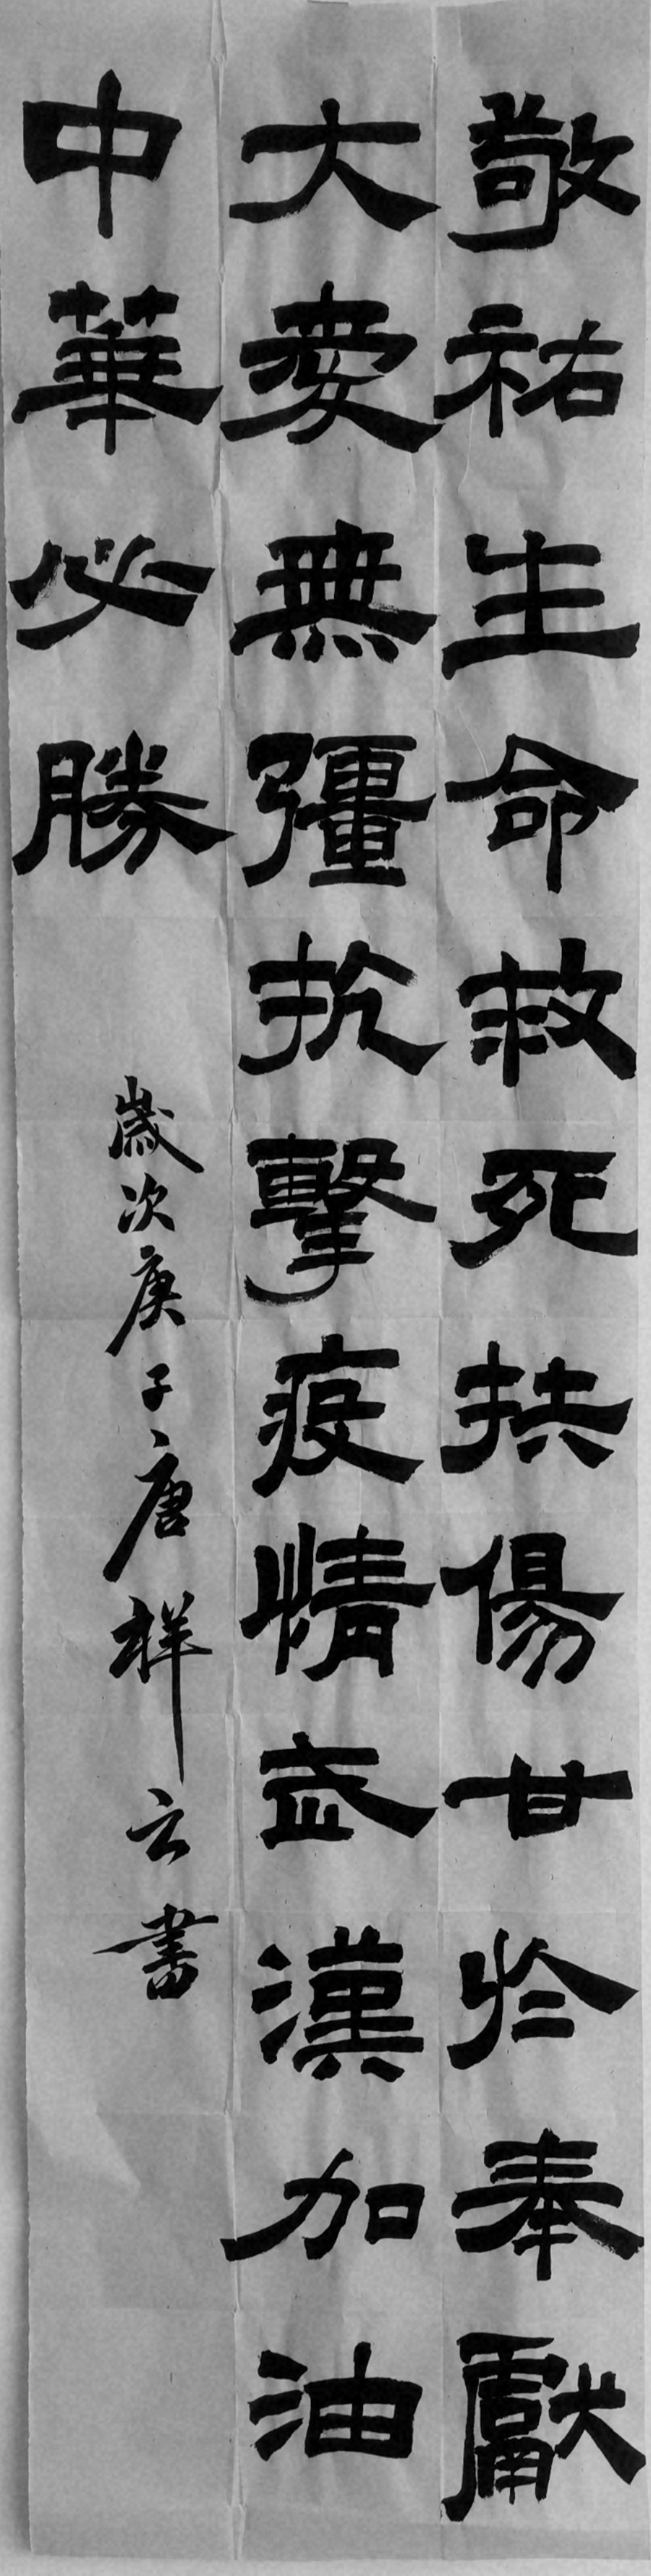 敬祐生命救死扶傷甘於奉獻
大愛無彊抗擊疫情武漢加油
中華必勝
歲次庚子唐祥云書